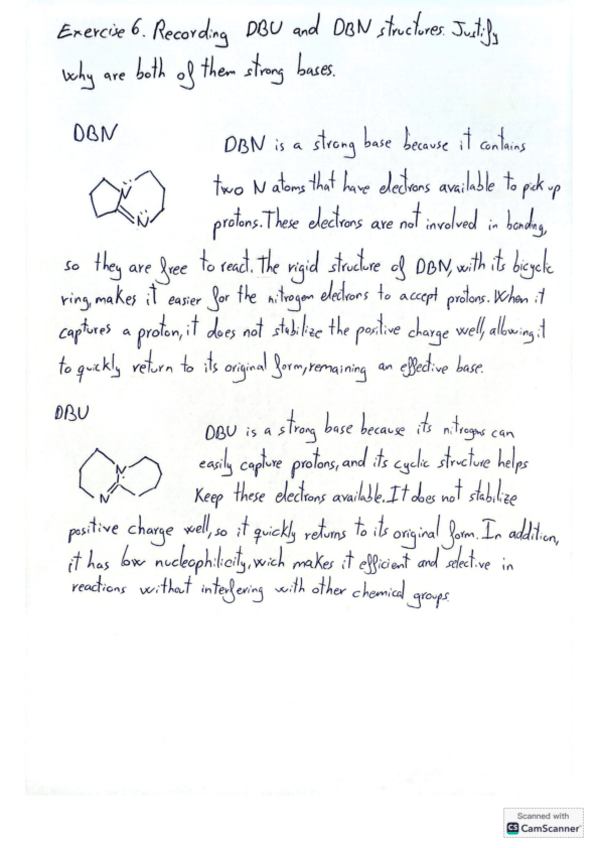 Exercise 6. Recording DBU and DBN structures. Justify
why are both of them strong bases.
DBN
DBN is a strong base because it contains
two N atoms that have electrons available to pick up
protons. These electrons are not involved in bonding,
N
N
so they are free to react. The rigid structure of DBN, with its bicyclic
ring, makes it easier for the nitrogen electrons to accept protons. When it
captures a proton, it does not stabilize the positive charge well, allowing it
to quickly return to its original form, remaining an effective base.
DBU
DBU is a strong base because its nitrogens can
easily capture protons, and its cyclic structure helps
Keep these electrons available. It does not stabilize
N
N
positive charge well, so it quickly returns to its original form. In addition,
it has low nucleophilicity, wich makes it efficient and selective in
reactions without interfering with other chemical groups.
Scanned with
CS CamScanner